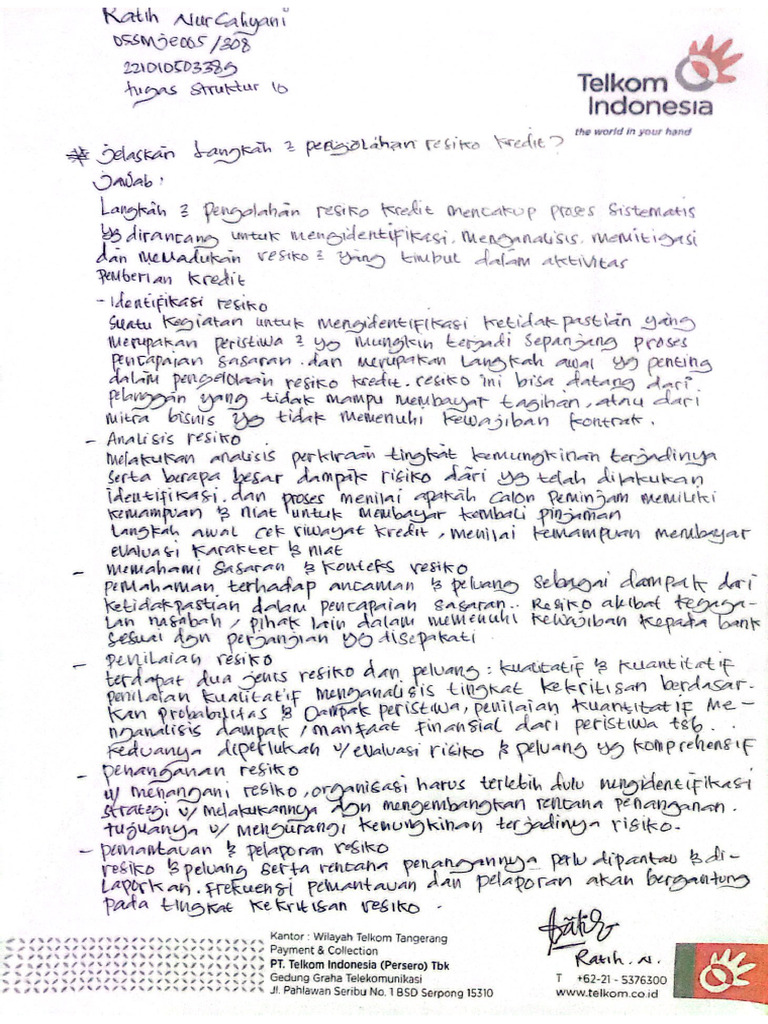 Ratih Nur Cahyani
05SMJE005/308
221010503389
tugas struktur 10
Telkom
Indonesia
the world in your hand
* jelaskan Langkah 2 pengolahan resiko kredit?
jawab:
Langkah 2 pengolahan resiko kredit mencakup proses sistematis
yg dirancang untuk mengidentifikasi, menganalisis, memitigasi
dan memadukan resiko 2 yang timbul dalam aktivitas
pemberian kredit
- Identifikasi resiko
suatu kegiatan untuk mengidentifikasi ketidakpastian yang
merupakan peristiwa 2 yg mungkin terjadi sepanjang proses
pencapaian sasaran. dan merupakan langkah awal yg penting
dalam pengelolaan resiko kredit. resiko ini bisa datang dari
pelanggan yang tidak mampu membayar tagihan, atau dari
mitra bisnis yg tidak memenuhi kewajiban kontrak.
- Analisis resiko
melakukan analisis perkiraan tingkat kemungkinan terjadinya
serta berapa besar dampak risiko dari yg telah dilakukan
identifikasi. dan proses menilai apakah calon peminjam memiliki
kemampuan & niat untuk membayar kembali pinjaman
Langkah awal cek riwayat kredit, menilai kemampuan membayar
evaluasi karakter & niat
- memahami sasaran & konteks resiko
pemahaman terhadap ancaman & peluang sebagai dampak dari
ketidakpastian dalam pencapaian sasaran.. Resiko akibat kegaga-
lan nasabah / pihak lain dalam memenuhi kewajiban kepada bank
sesuai dgn perjanjian yg disepakati.
- penilaian resiko
terdapat dua jenis resiko dan peluang: kualitatif & kuantitatif
penilaian kualitatif menganalisis tingkat kekritisan berdasar-
kan probabilitas & Dampak peristiwa, penilaian kuantitatif me-
nganalisis dampak / manfaat finansial dari peristiwa tsb...
keduanya diperlukah u/ evaluasi risiko & peluang yg komprehensif
- penanganan resiko
u/ menangani resiko, organisasi harus terlebih dulu mengidentifikasi
strategi u/ melakukannya dgn mengembangkan rencana penanganan.
tujuanya u/ mengurangi kemungkinan terjadinya risiko.
- pemantauan & pelaporan resiko
resiko & peluang serta rencana penangannya perlu dipantau & di-
laporkan. frekuensi pemantauan dan pelaporan akan bergantung
pada tingkat kekritisan resiko.
Ratih. N.
Kantor : Wilayah Telkom Tangerang
Payment & Collection
PT. Telkom Indonesia (Persero) Tbk
Gedung Graha Telekomunikasi
Jl. Pahlawan Seribu No. 1 BSD Serpong 15310
T +62-21 - 5376300
www.telkom.co.id